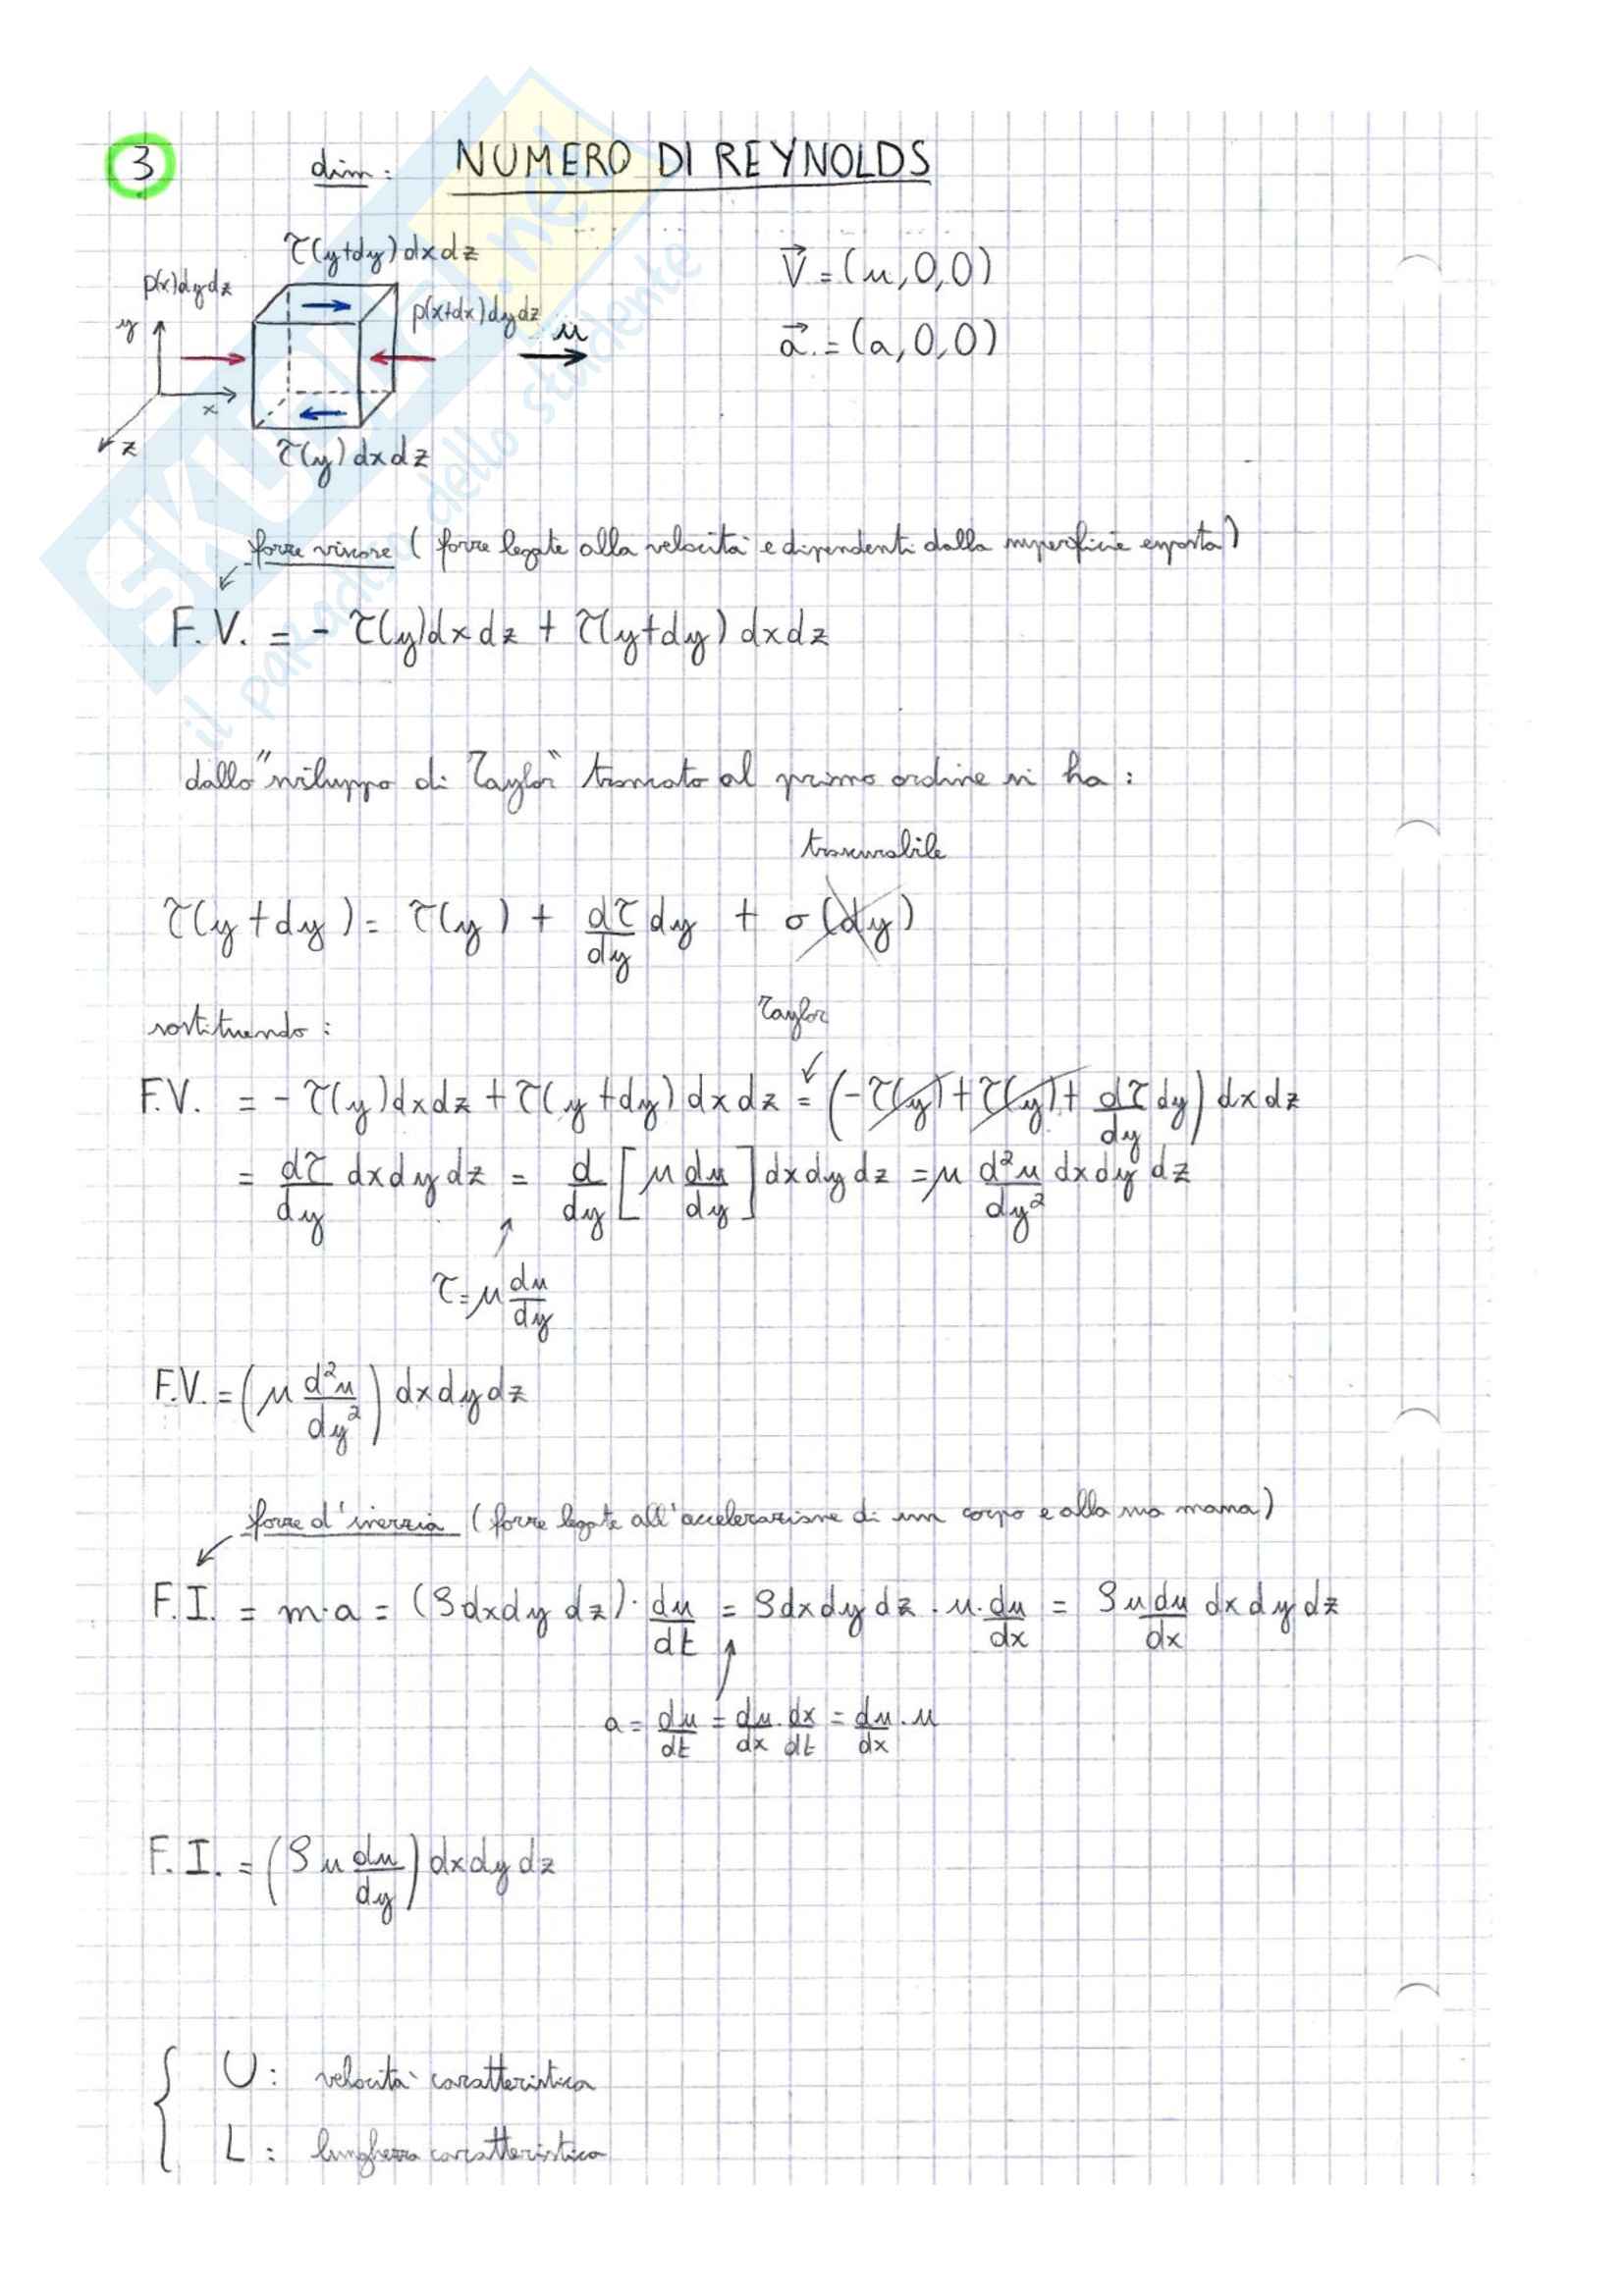 3 dim: NUMERO DI REYNOLDS
τ(y+dy) dxdz
p(x)dydz
p(x+dx)dydz
y
u
x
z
τ(y) dxdz
V⃗ = (u,0,0)
a⃗ = (a,0,0)
forze viscose ( forze legate alla velocità e dipendenti dalla superficie esposta)
F.V. = - τ(y)dxdz + τ(y+dy) dxdz
dallo "sviluppo di Taylor" troncato al primo ordine si ha :
trascurabile
τ(y+dy) = τ(y) + dτ/dy dy + σ(dy)
sostituendo :
Taylor
F.V. = - τ(y)dxdz + τ(y+dy) dxdz = (-τ(y) + τ(y) + dτ/dy dy) dxdz
= dτ/dy dxdydz = d/dy [μ du/dy] dxdydz = μ d²u/dy² dxdydz
τ = μ du/dy
F.V. = (μ d²u/dy²) dxdydz
forze d'inerzia ( forze legate all'accelerazione di un corpo e alla sua massa)
F.I. = m·a = (ρdxdydz)· du/dt = ρdxdydz · u· du/dx = ρu du/dx dxdydz
a = du/dt = du/dx · dx/dt = du/dx · u
F.I. = (ρu du/dy) dxdydz
U : velocità caratteristica
L : lunghezza caratteristica
SKUOLA.net
il paradiso dello studente